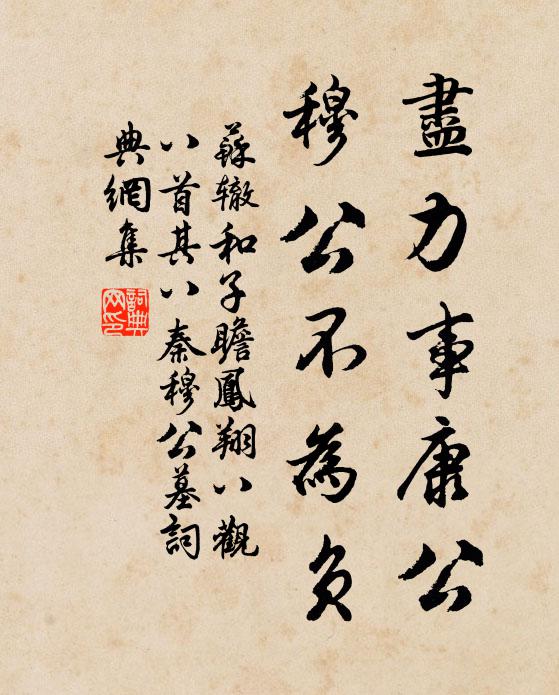 盡力事康公
穆公不為負
蘇轍和子瞻鳳翔八觀
八首其八秦穆公墓詞
典網集
詞典網印